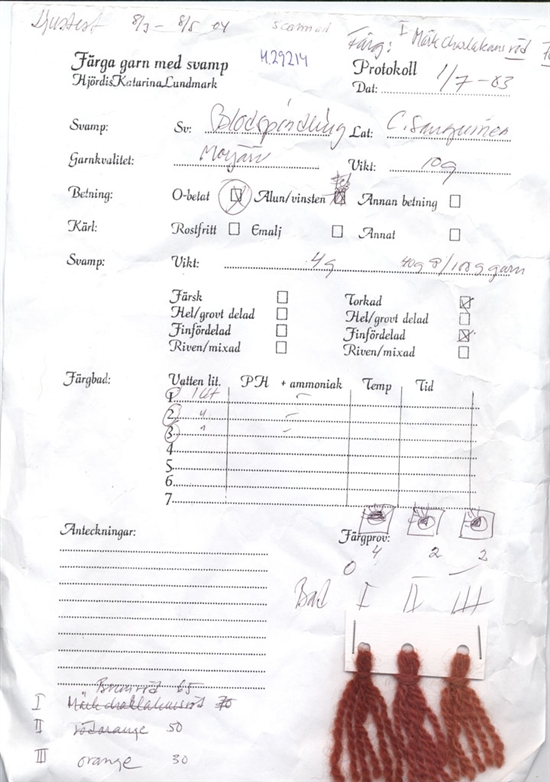 Ljustest 8/3 - 8/5 04 scannad
Färg: I Mörk choklakansröd
Färga garn med svamp H.29214 Protokoll
Hjördis Katarina Lundmark Dat: 1/7-83
Svamp: Sv: Blodspindling Lat: C. Sanguineus
Garnkvalitet: Vikt: 10g
Betning: O-betat Alun/vinsten Annan betning
Kärl: Rostfritt Emalj Annat
Svamp: Vikt: 4g 40g /100g garn
Färsk Torkad
Hel/grovt delad Hel/grovt delad
Finfördelad Finfördelad
Riven/mixad Riven/mixad
Färgbad: Vatten lit. PH + ammoniak Temp Tid
1 1 lit –
2 " –
3 " –
4
5
6
7
Anteckningar: Färgprov:
4 2 2
0
Bad I II III
Brunröd 65
I 70
II rödorange 50
III orange 30